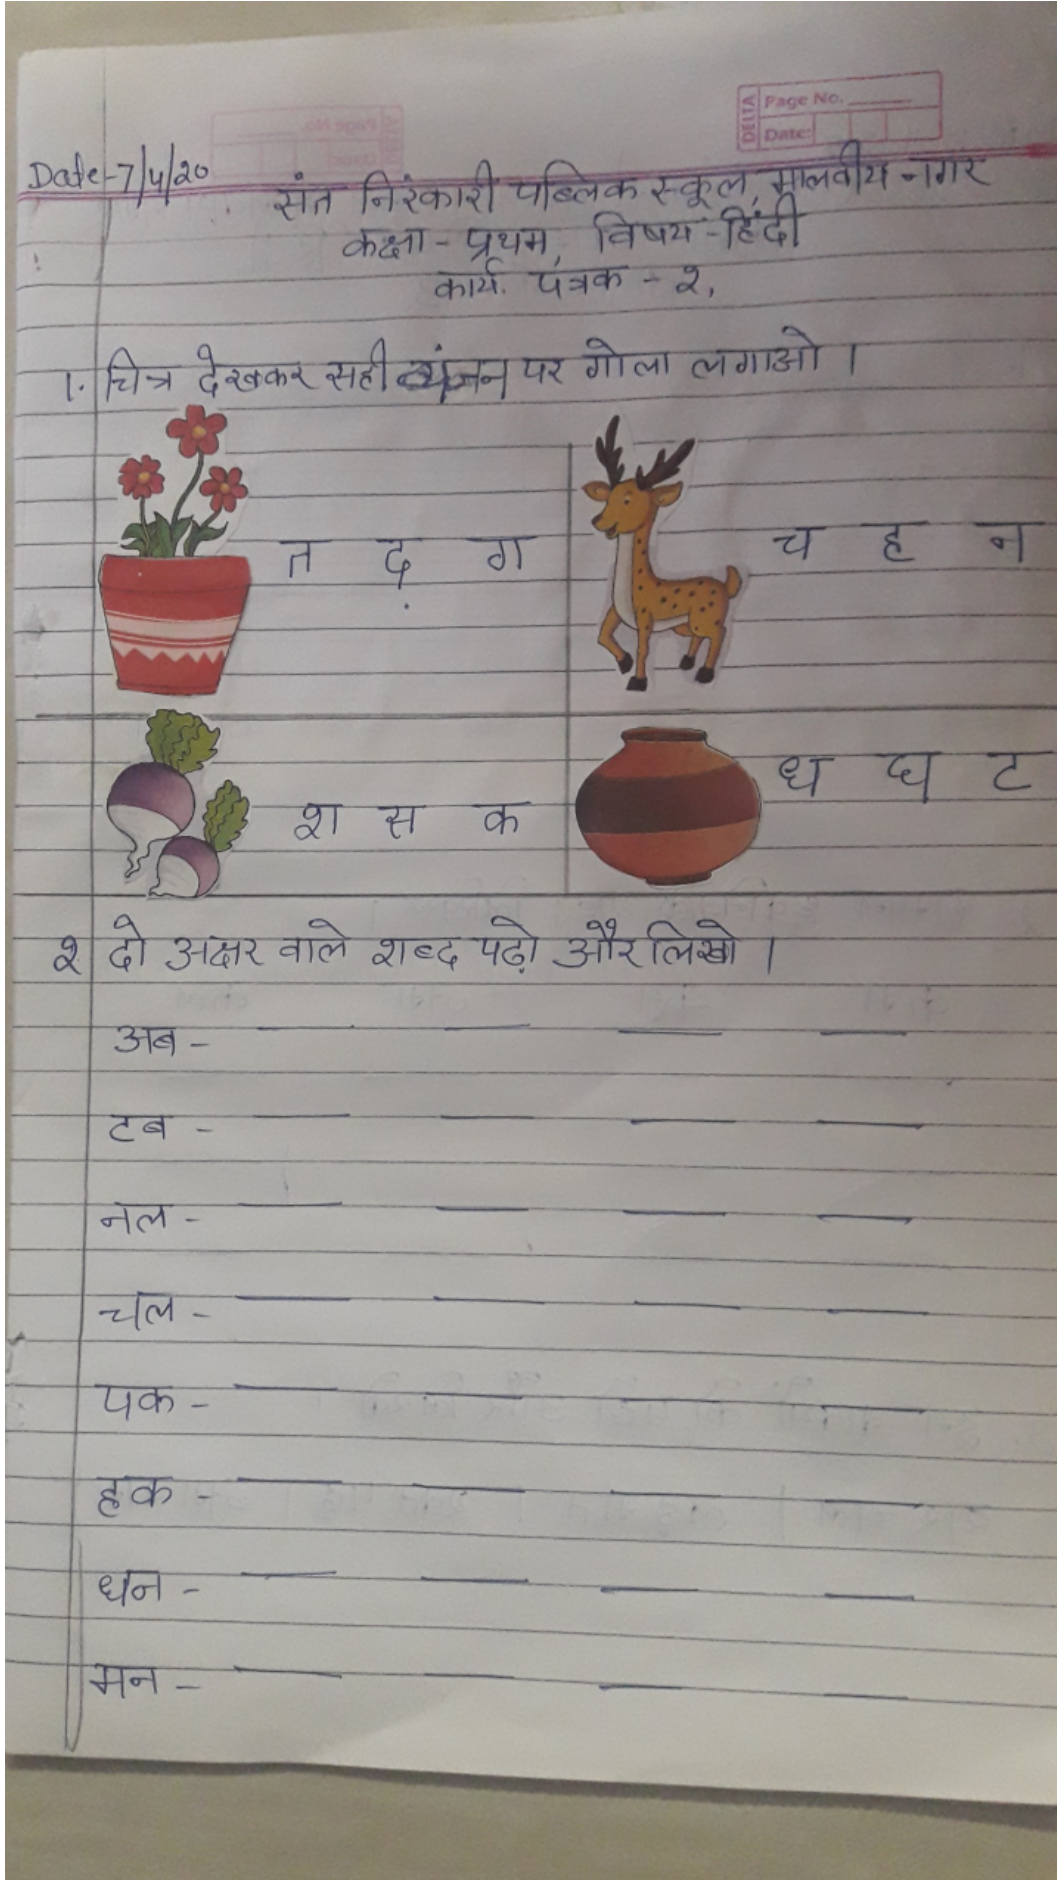 DELTA
Page No.
Date:
Date-7/4/20
संत निरंकारी पब्लिक स्कूल, मालवीय नगर
कक्षा - प्रथम, विषय-हिंदी
कार्य. पत्रक - २,
1. चित्र देखकर सही व्यंजन पर गोला लगाओ ।
त द ग
च ह न
श स क
ध घ ट
२ दो अक्षर वाले शब्द पढ़ो और लिखो ।
अब -
टब -
नल -
चल -
पक -
हक -
धन -
मन -